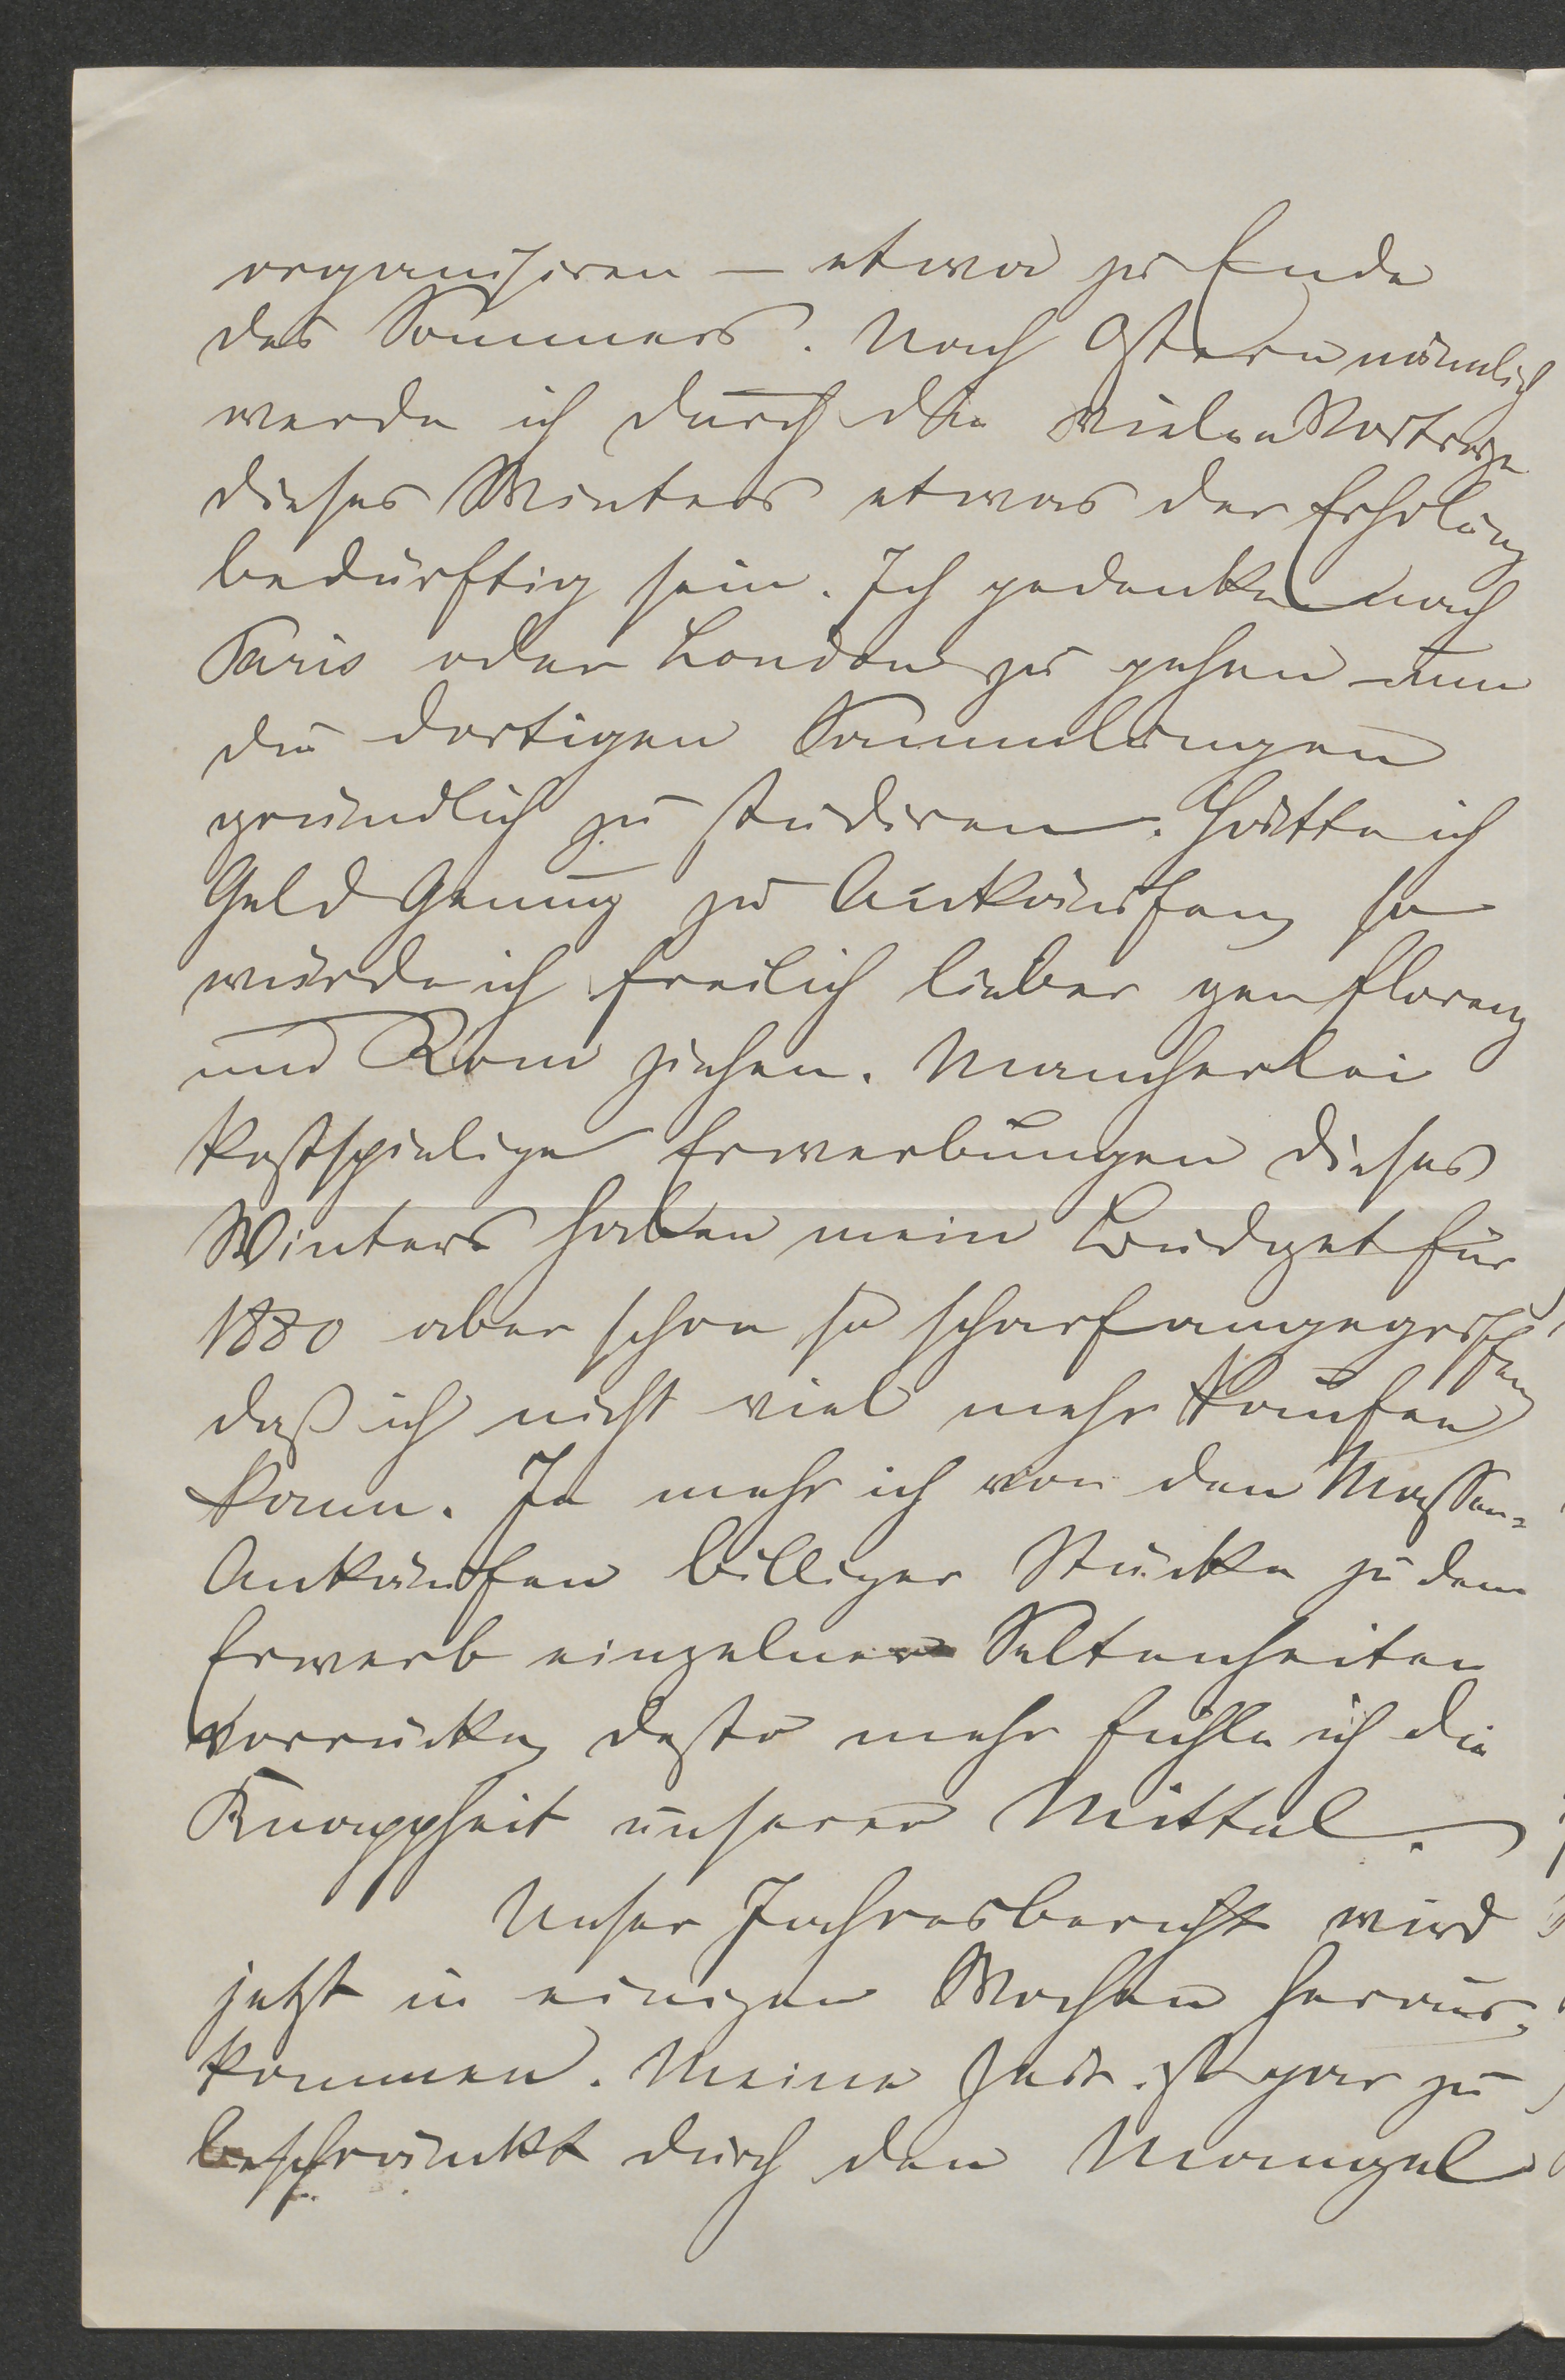 organisiren — etwa zu Ende
des Sommers. Nach Ostern nämlich
werde ich durch die vielen Vorträge
dieses Winters etwas der Erholung
bedürftig sein. Ich gedenke nach
Paris oder London zu gehen um
die dortigen Sammlungen
gründlich zu studiren. Hätte ich
Geld genug zu Ankäufen, so
würde ich freilich lieber gen Florenz
und Rom ziehen. Mancherlei
kostspielige Erwerbungen dieses
Winters haben mein Budget für
1880 aber schon so scharf angegriffen,
daß ich nicht viel mehr kaufen
kann. Je mehr ich von den Massen-
Ankäufen billiger Stücke zu dem
Erwerb einzelner Seltenheiten
vorrücke, desto mehr fühle ich die
Knappheit unserer Mittel.
Unser Jahresbericht wird
jetzt in einigen Wochen heraus-
kommen. Meine Zeit ist gar zu
beschränkt durch den Mangel